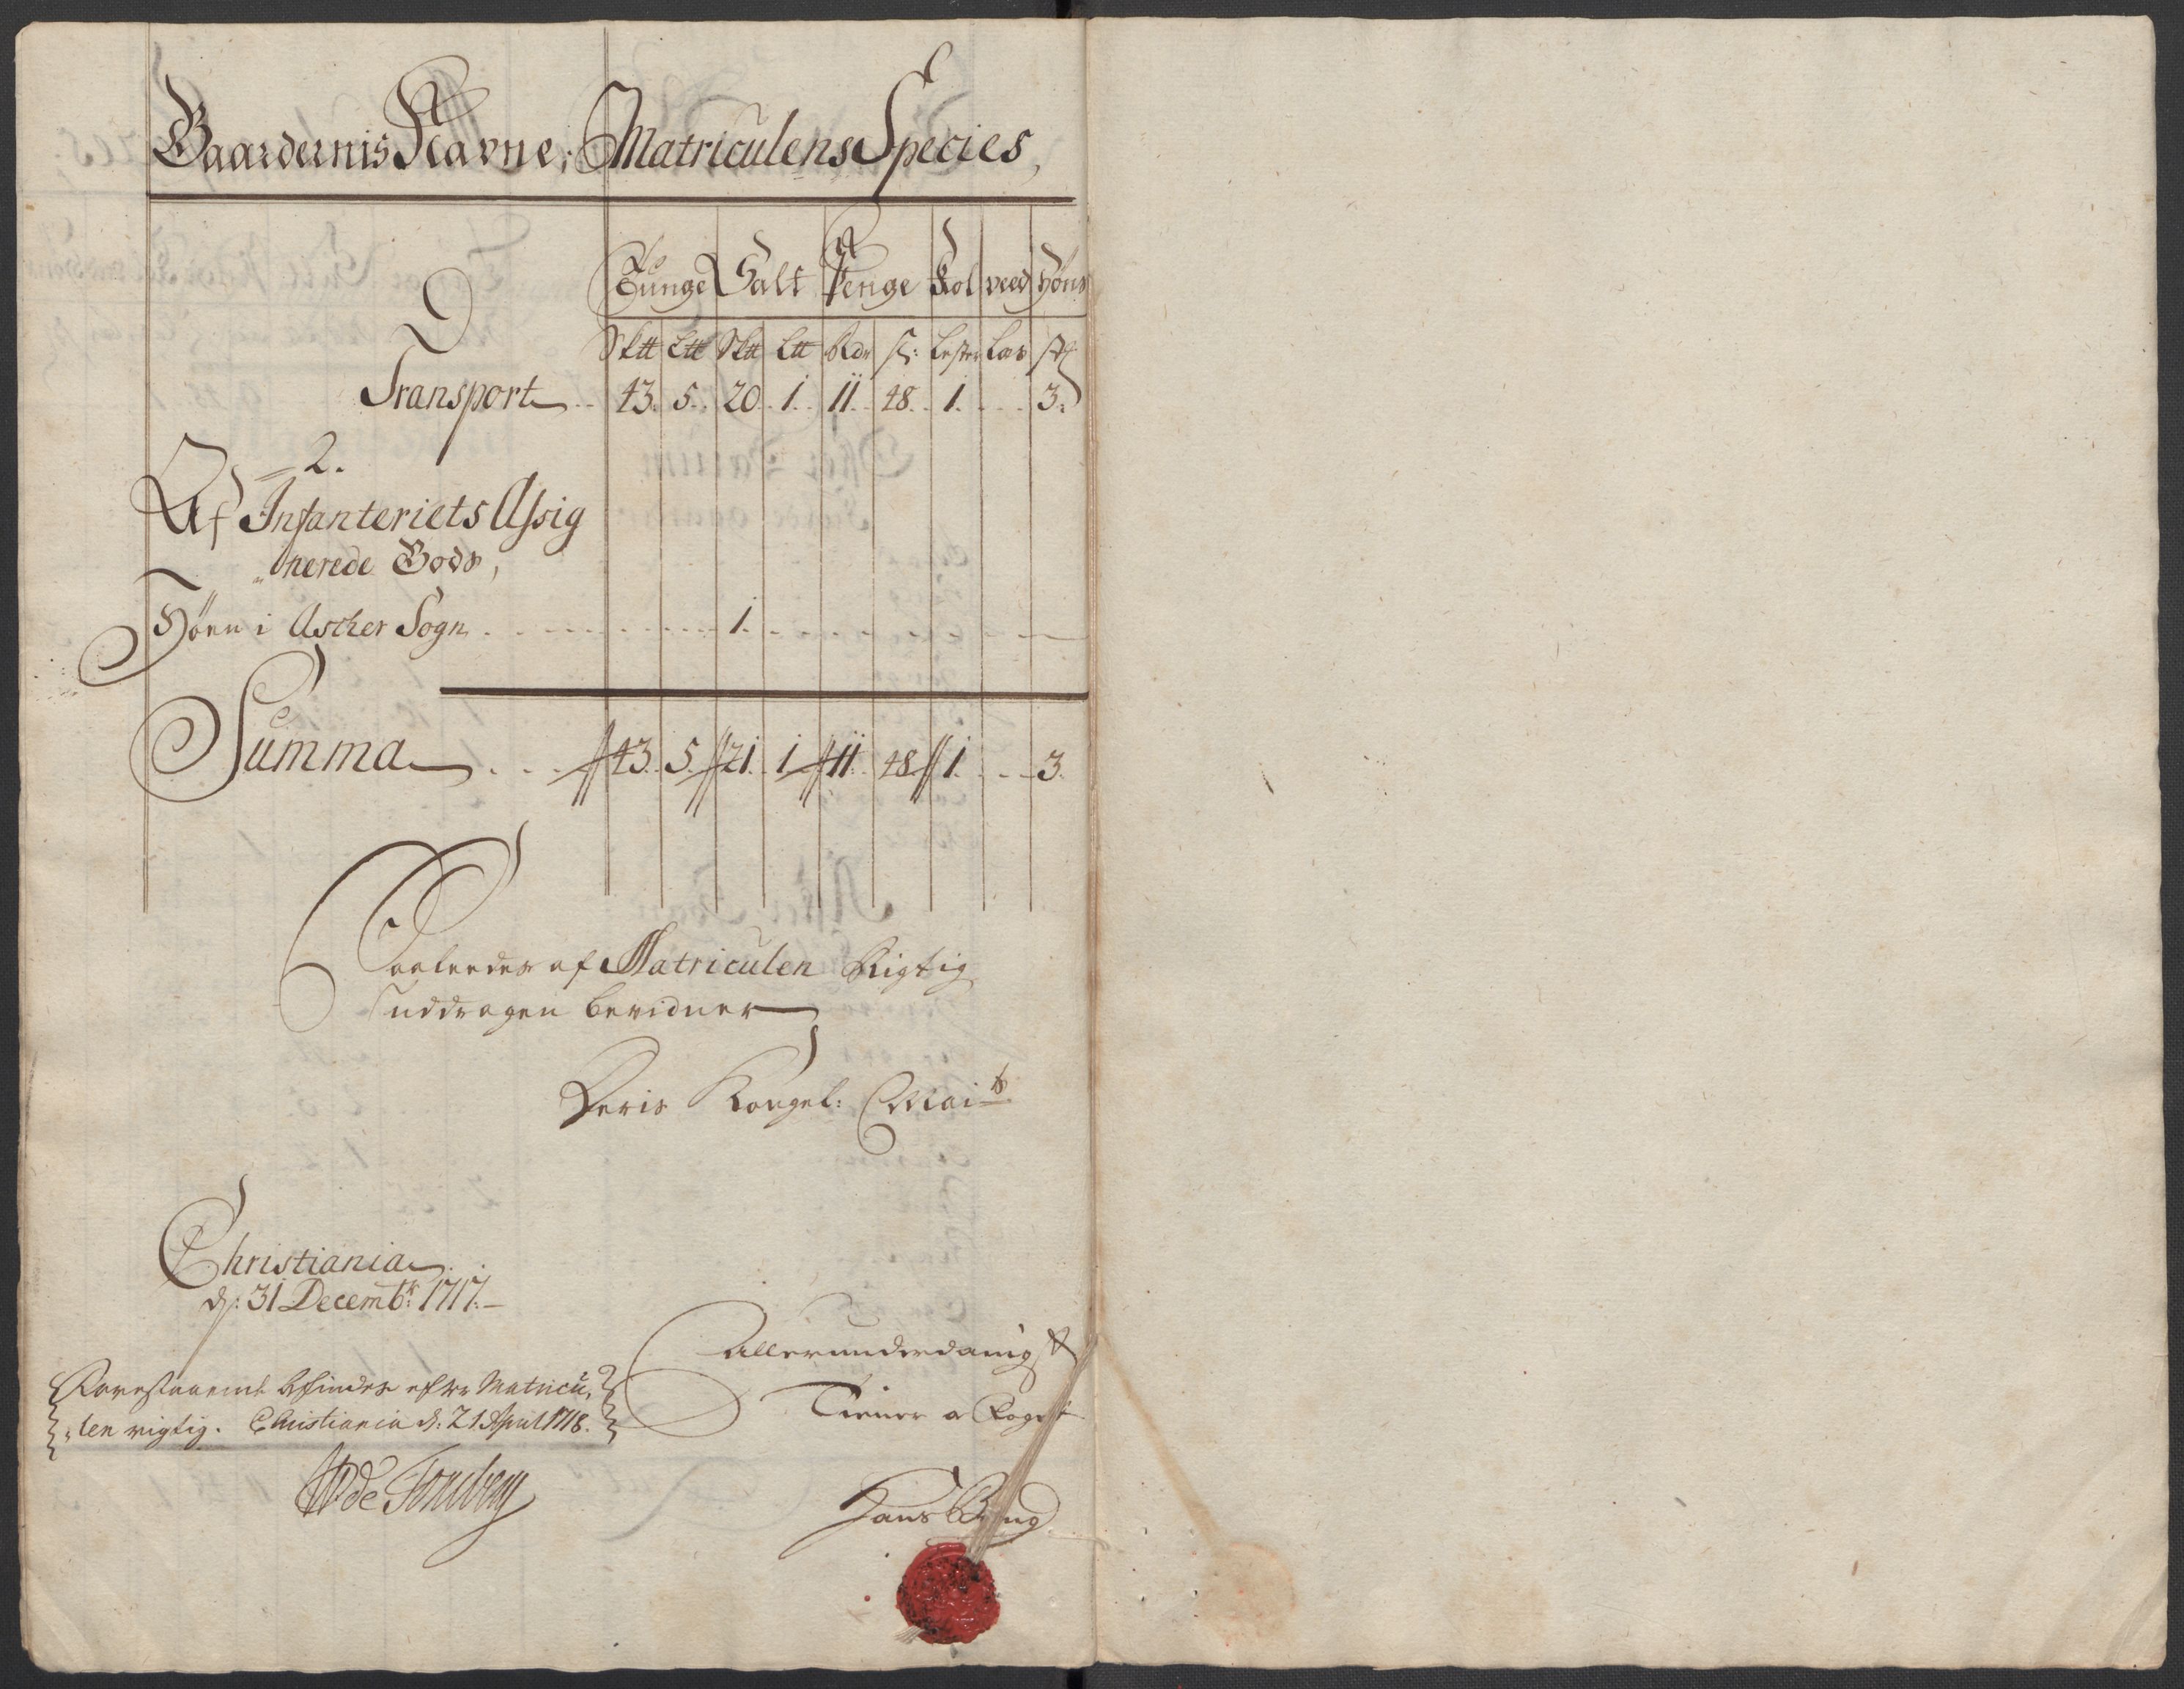 Gaardernis Navne; Matriculens Species,
Tunge Salt Penge Kol veed Høns
Sk℔ L℔ Sk℔ L℔ Rdr ß: Lester Las stk
Transport .. 43. 5. 20. 1. 11. 48. 1. ... 3.
2.
Af Infanteriets Assig
nerede Gods,
Hørn i Ascher Sogn . . . 1. . . .
Summa . . . 43. 5. 21. 1. 11. 48. 1. . . . 3.
Saaleedes af Matriculen Rigtig
uddragen bevidner
Deris Kongel: Maits
Christiania
d: 31 Decembr: 1717.
Allerunderdanigst
Forestaaende befindes efter Matricu,
len rigtig. Christiania d: 21 April 1718.
Tiener o Foget
de Tonsberg
Hans